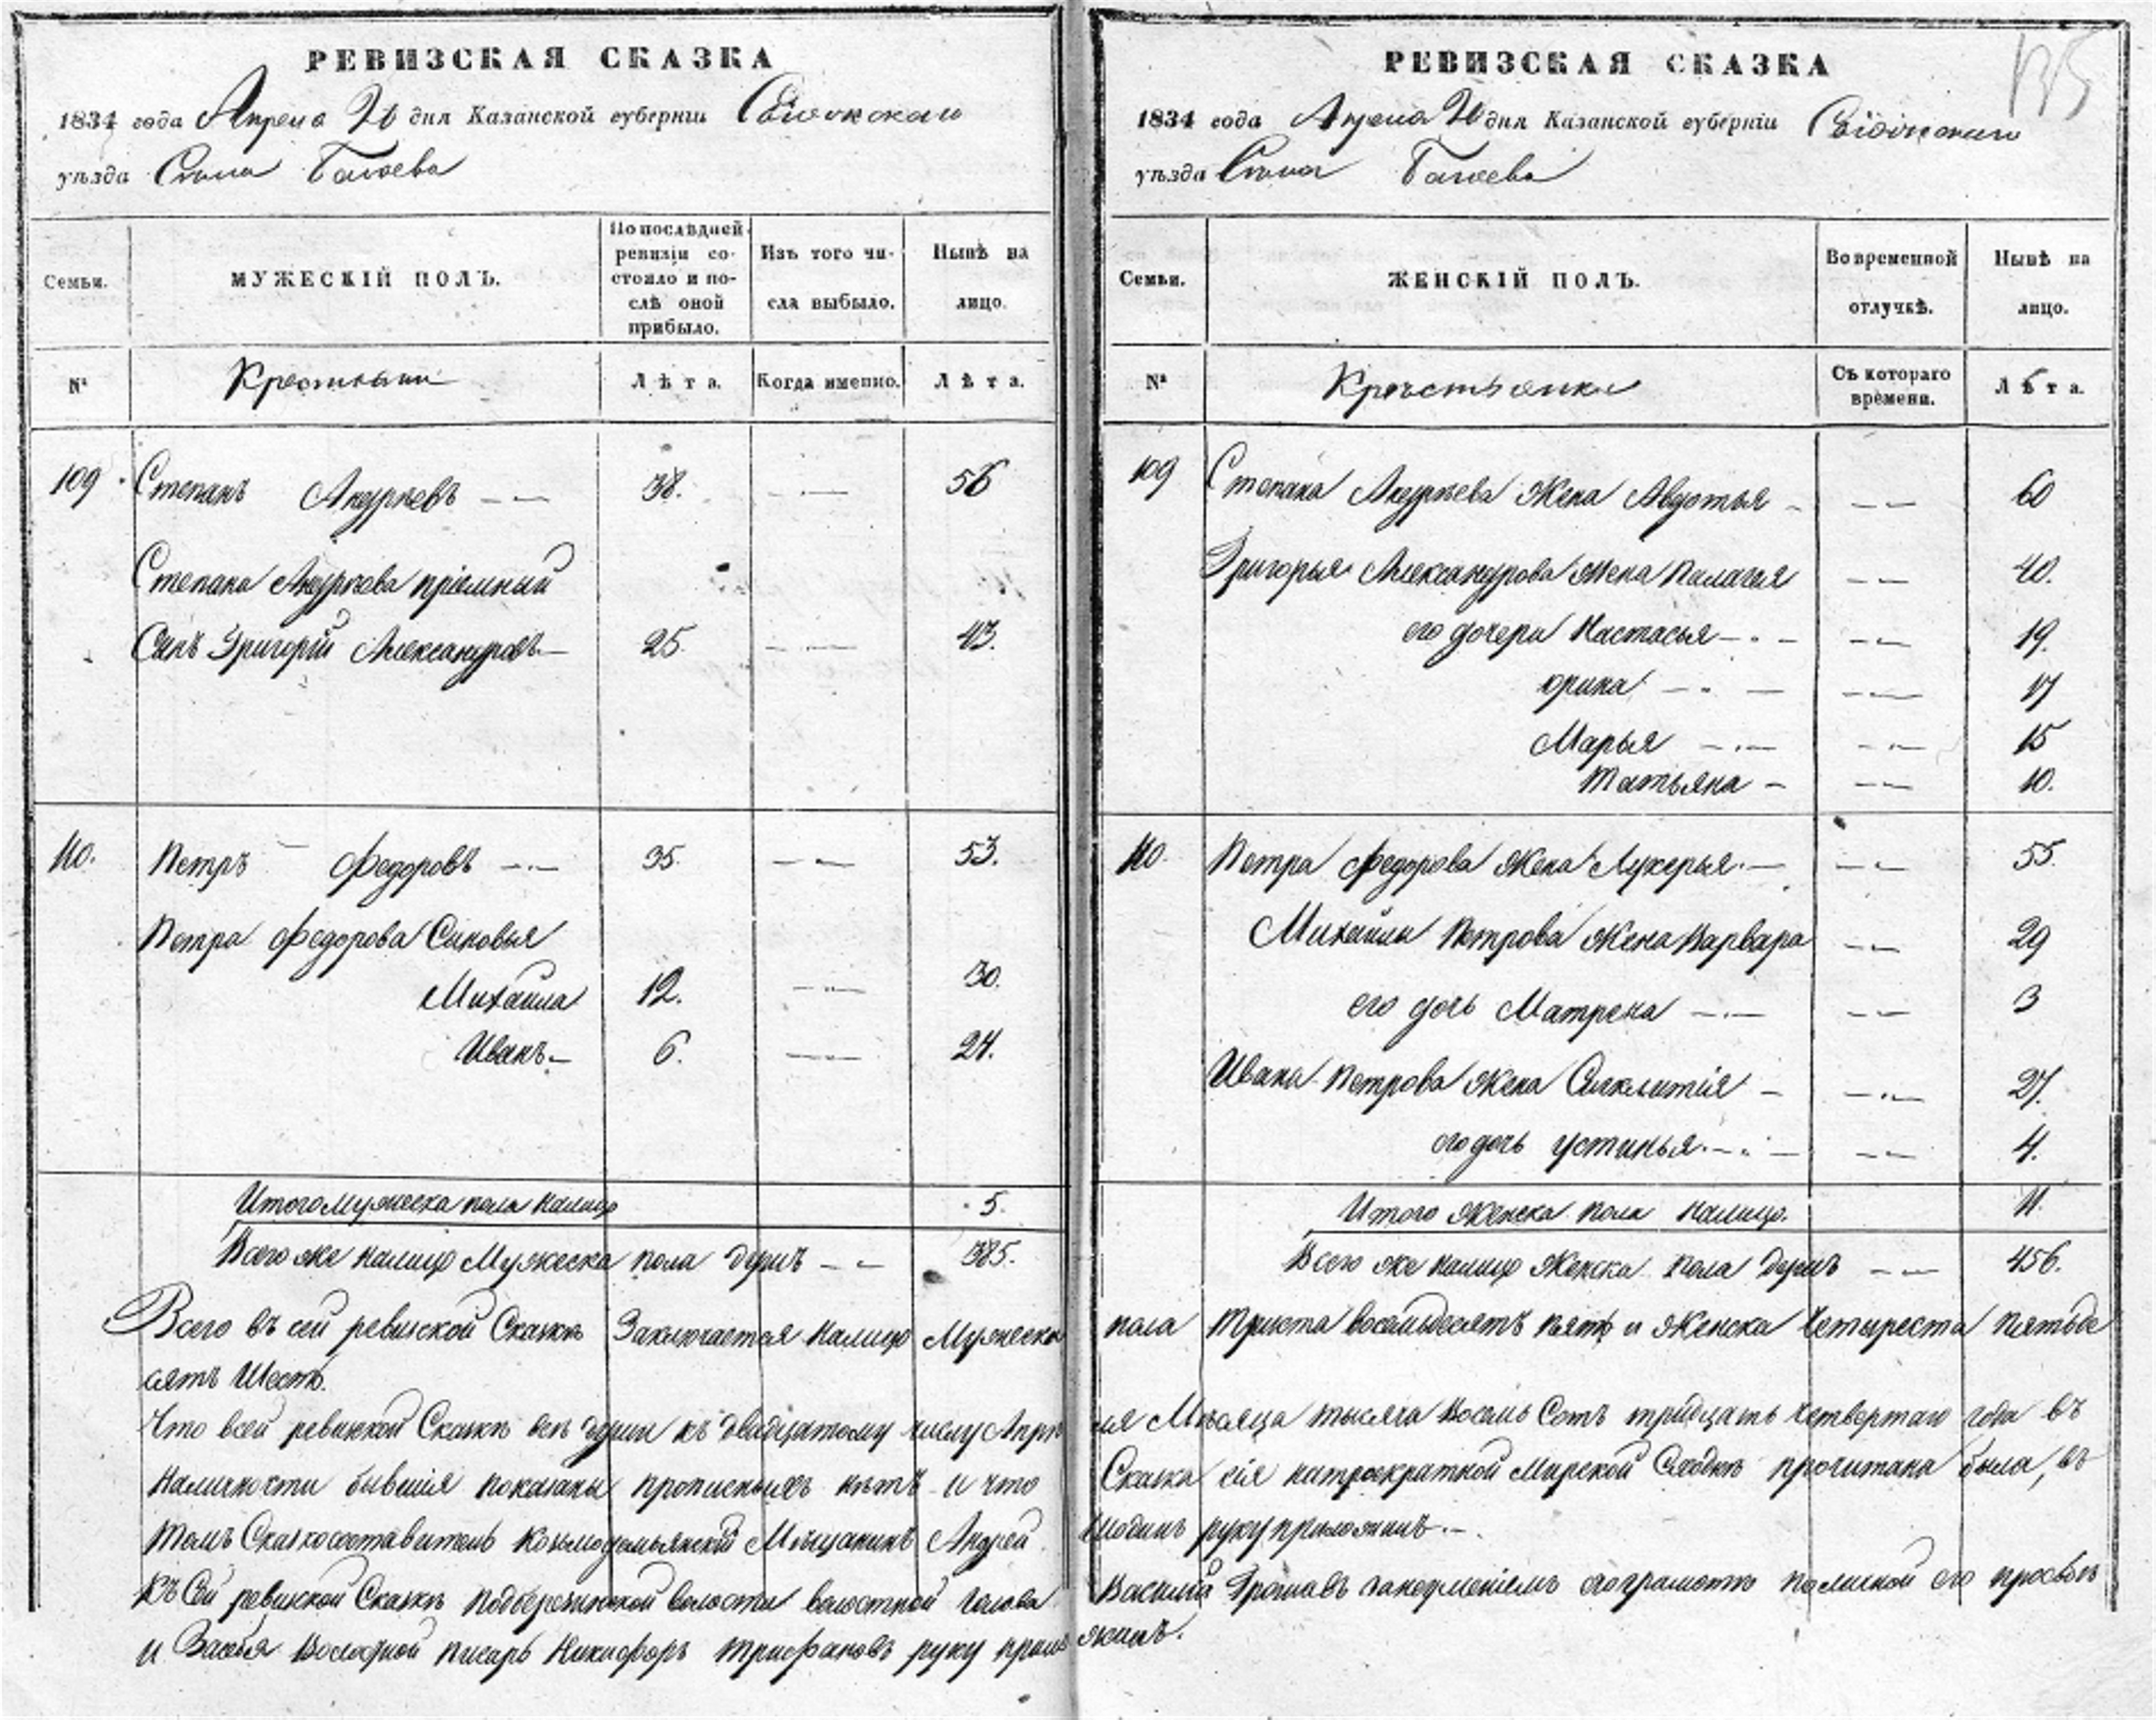 РЕВИЗСКАЯ СКАЗКА
1834 года Апреля 20 дня Казанской губерніи
уѣзда Села
Семьи.
МУЖЕСКІЙ ПОЛЪ.
По послѣдней ревизіи состояло и послѣ оной прибыло.
Изъ того числа выбыло.
Нынѣ на лицо.
№
Крестьяни
Лѣта.
Когда именно.
Лѣта.
109 Степанъ Андреевъ 38. 56
Степана Андреева пріемный
Сынъ Григорій Александровъ 25 43.
110. Петръ Федоровъ 35 53.
Петра Федорова Сыновья
Михайла 12. 30.
Иванъ 6. 24.
Итого мужеска пола налицо 5.
Всего же налицо Мужеска пола душъ 385.
РЕВИЗСКАЯ СКАЗКА
135
1834 года Апреля 20 дня Казанской губерніи
уѣзда Села
Семьи.
ЖЕНСКІЙ ПОЛЪ.
Во временной отлучкѣ.
Нынѣ на лицо.
№
Крестьянки
Съ котораго времени.
Лѣта.
109 Степана Андреева Жена Авдотья 60
Григорья Александрова жена Палагия 40.
его дочери Настасья 19.
орина 17
Марья 15
Татьяна 10.
110. Петра Федорова Жена Лукерья 55
Михайлы Петрова Жена Варвара 29
его дочь Матрена 3
Ивана Петрова Жена Сияклитія 27.
его дочь Устинья 4.
Итого Женска пола налицо. 11.
Всего же налицо Женска пола Душъ 456.
Всего въ сей ревизской Сказкѣ Заключается налицо Мужеска пола триста восемьдесятъ пять и Женска Четыреста пятьде
сятъ Шесть.
Что въ сей ревизкой Сказкѣ все души къ двадцатому числу Апреля Мѣсяца тысяча Восемь Сотъ тридцать Четвертаго года въ
Наличности бывшія показаны прописныхъ нѣтъ и что Сказка сія на Мирской Сходкѣ прочитана была, въ
томъ Сказкосоставитель Козьмодемьянской Мѣщанинъ Андрей руку приложилъ.
Къ Сей ревизкой Сказкѣ волости волостной голова Василий за неумѣніемъ грамотѣ по личной его просьбѣ
и За себя Волостной писарь Никифоръ Трифановъ руку приложилъ.